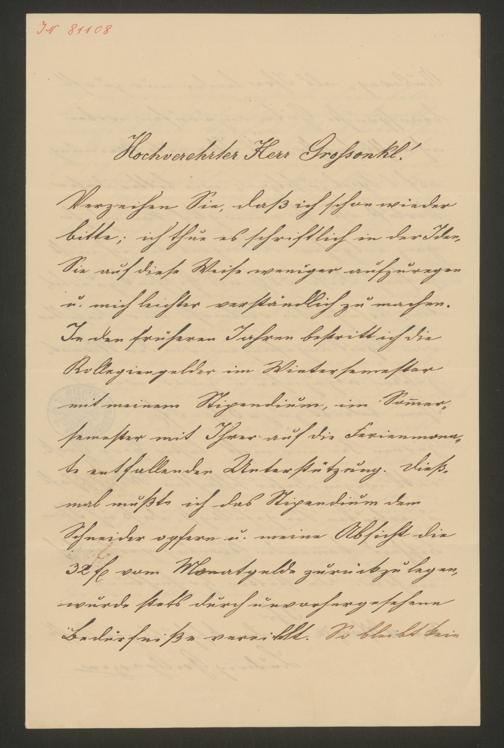 IN 81108
Hochverehrter Herr Grossonkl!
Verzeihen Sie, daß ich schon wieder
bitte; ich thue es schriftlich in der Idee,
Sie auf diese Weise weniger aufzuregen
u. mich leichter verständlich zu machen.
In den früheren Jahren bestritt ich die
Kollegiengelder im Wintersemester
mit meinem Stipendium, im Som̅er-
semester mit Ihrer auf die Ferienmona-
te entfallenden Unterstützung. Dieß-
mal mußte ich das Stipendium dem
Schneider opfern u. meine Absicht die
32 fl vom Monatgelde zurückzulegen,
wurde stets durch unvorhergesehene
Bedürfniße vereitelt. So bleibt kein